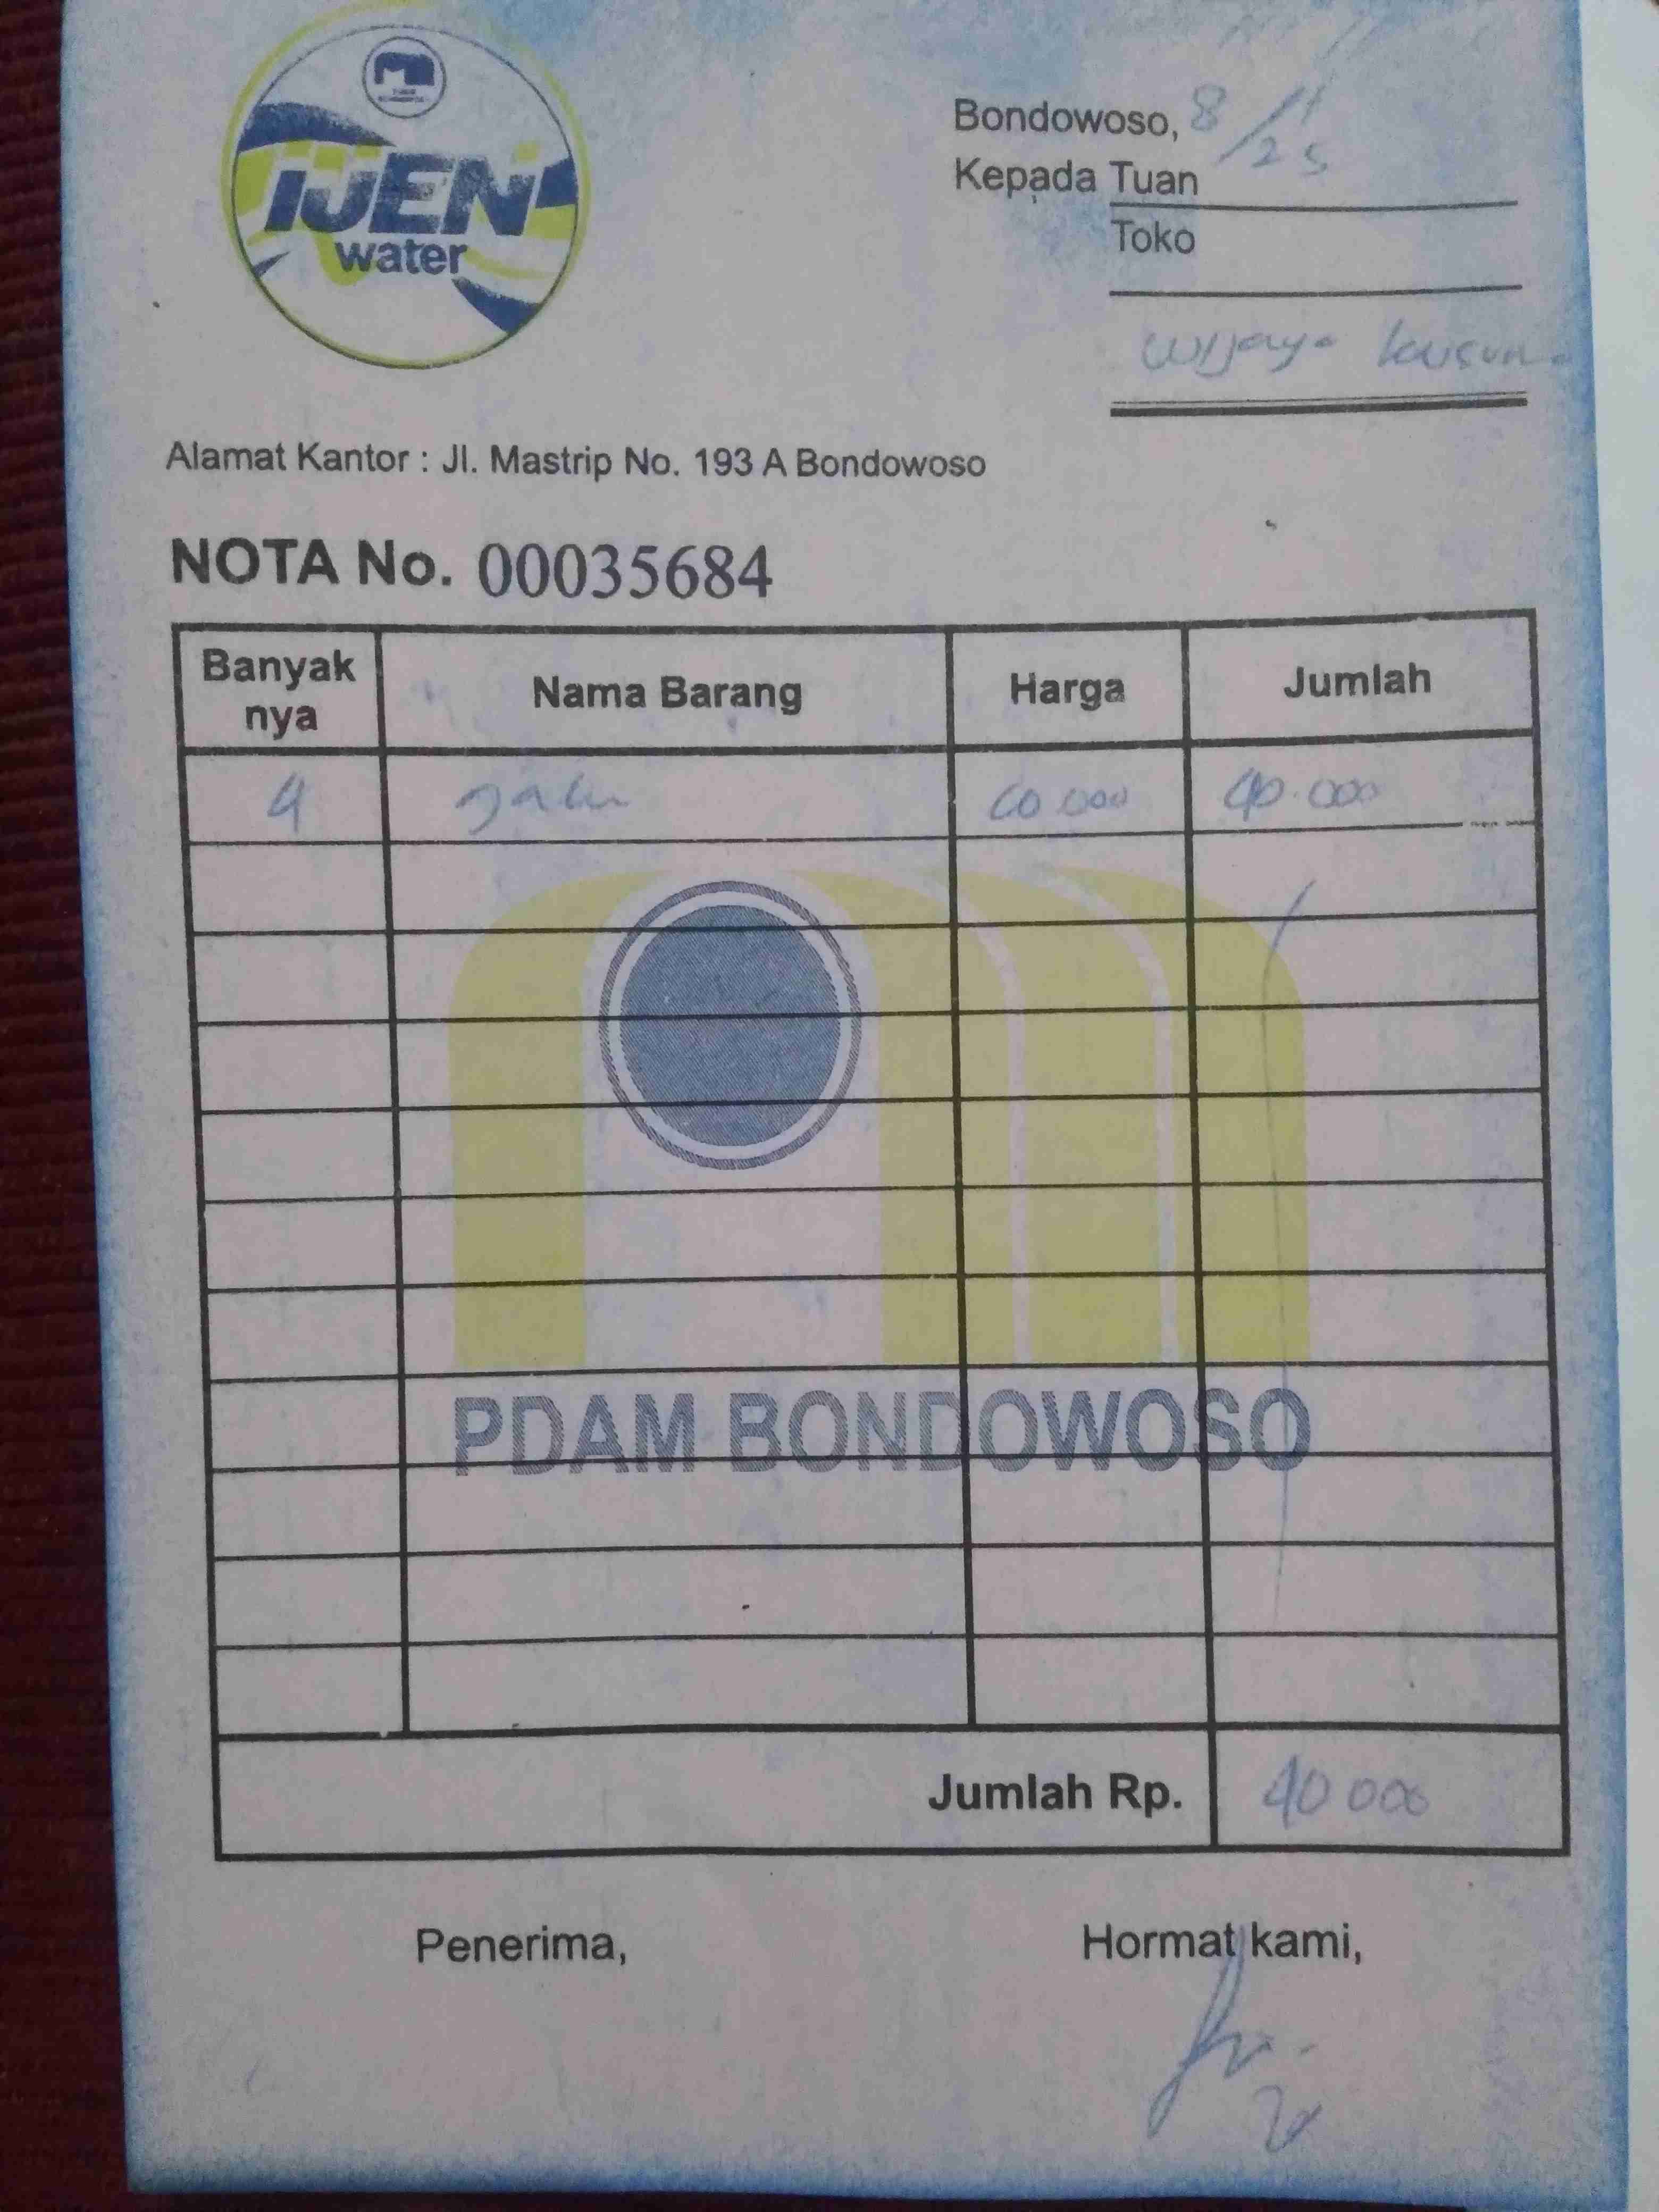 IJEN
water
Bondowoso, 8/11
25
Kepada Tuan
Toko
Wijaya Kusuma
Alamat Kantor : Jl. Mastrip No. 193 A Bondowoso
NOTA No. 00035684
Banyak nya Nama Barang Harga Jumlah
4 galon 10.000 40.000
PDAM BONDOWOSO
Jumlah Rp. 40 000
Penerima, Hormat kami,